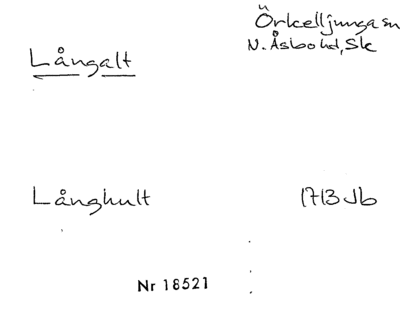 Örkelljunga sn
N. Åsbo hd, Sk
Långalt
Långhult 1713 Jb
Nr 18521